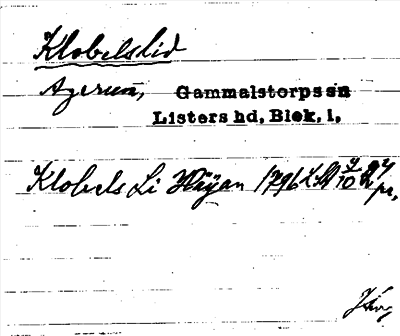 Klobelslid
Agerum, Gammalstorps sn
Listers hd, Blek. l.
Klobels Li Häÿan 1796 LSA